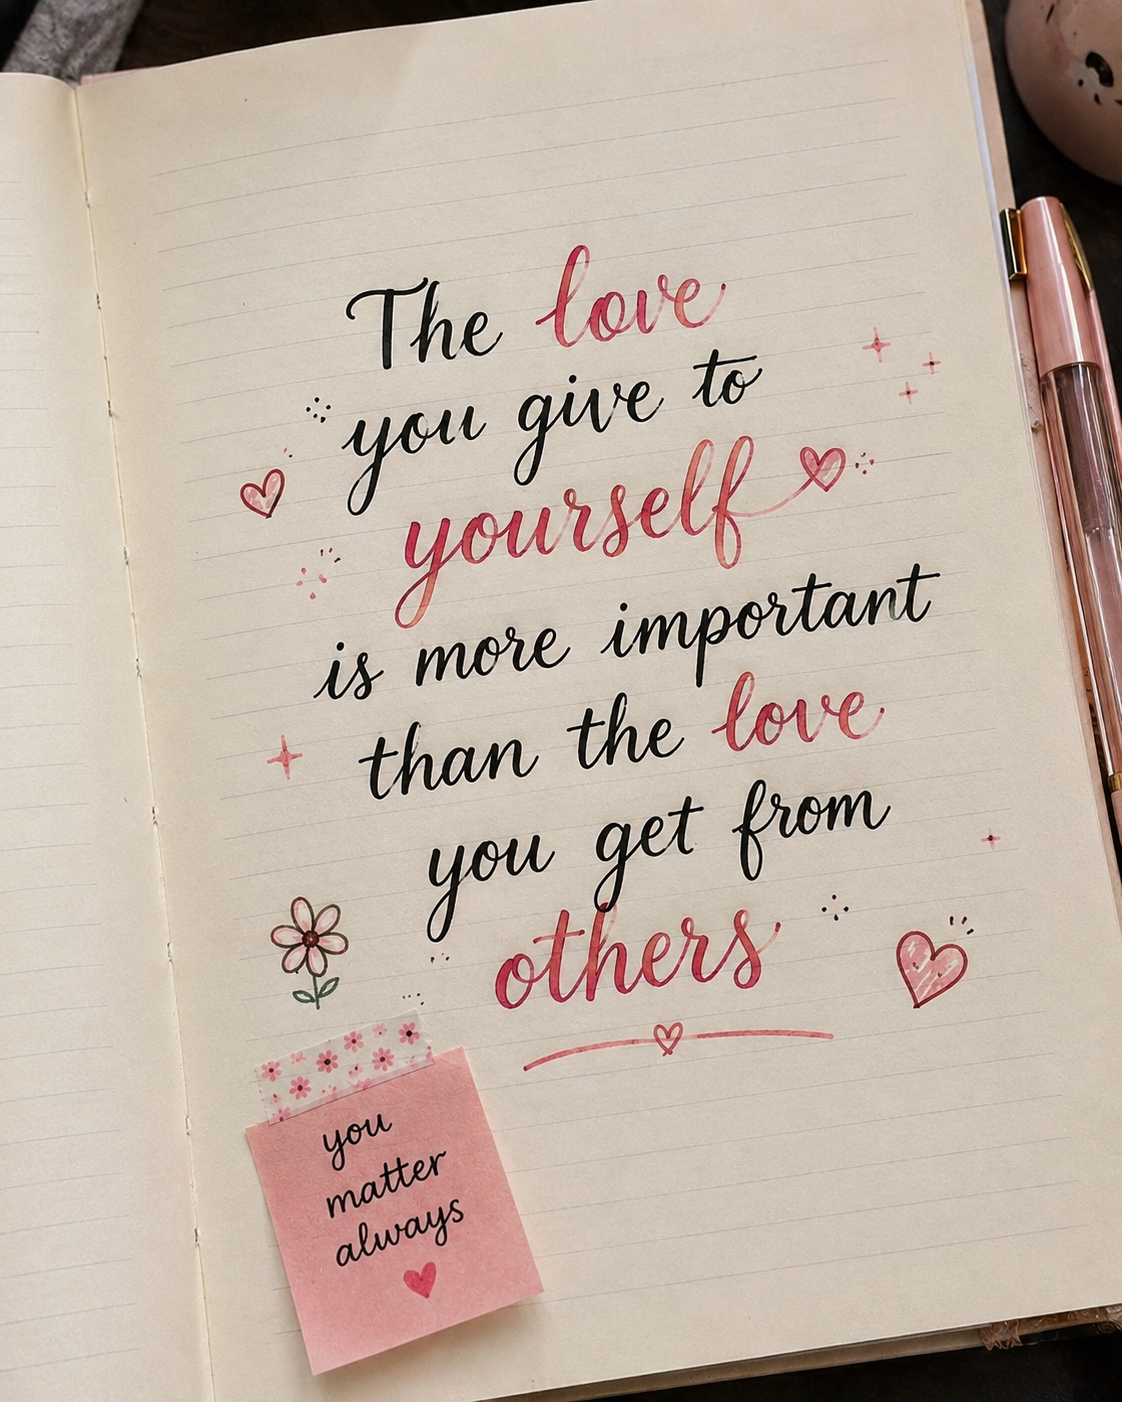 The love
you give to
yourself
is more important
than the love
you get from
others
you
matter
always